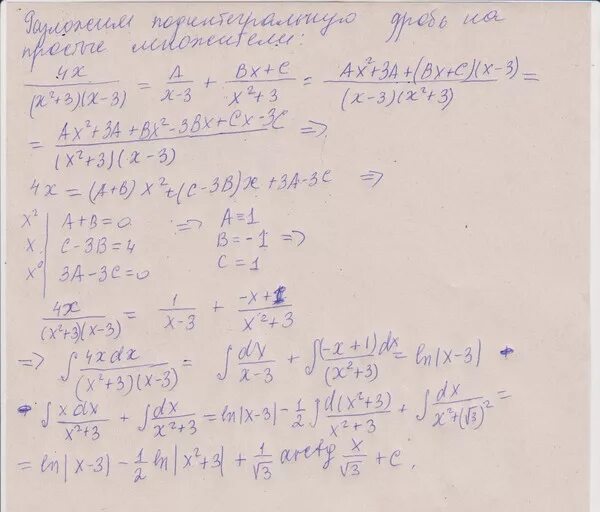 Разложим подинтегральную дробь на
простые множители:
4x/((x²+3)(x-3)) = A/(x-3) + (Bx+C)/(x²+3) = (Ax²+3A+(Bx+C)(x-3))/((x-3)(x²+3)) =
= (Ax²+3A+Bx²-3Bx+Cx-3C)/((x²+3)(x-3)) =>
4x = (A+B)x²+(C-3B)x+3A-3C =>
x² | A+B=0 => A=1
x | C-3B=4 B=-1 =>
x⁰ | 3A-3C=0 C=1
4x/((x²+3)(x-3)) = 1/(x-3) + (-x+1)/(x²+3)
=> ∫ 4xdx/((x²+3)(x-3)) = ∫ dx/(x-3) + ∫ (-x+1)dx/(x²+3) = ln|x-3| -
- ∫ xdx/(x²+3) + ∫ dx/(x²+3) = ln|x-3| - 1/2 ∫ d(x²+3)/(x²+3) + ∫ dx/(x²+(√3)²) =
= ln|x-3| - 1/2 ln|x²+3| + 1/√3 arctg x/√3 + C.